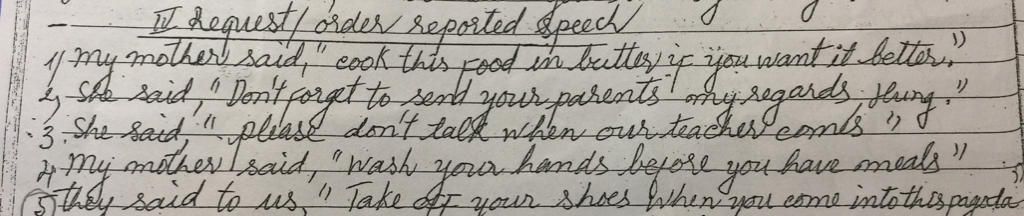 IV Request/ order reported speech
1) My mother said, "cook this food in butter, if you want it better."
2, She said, "Don't forget to send your parents my regards, Hung."
3. She said, "please don't talk when our teacher comes"
4, My mother said, "wash your hands before you have meals"
5) they said to us, "Take off your shoes when you come into this pagoda